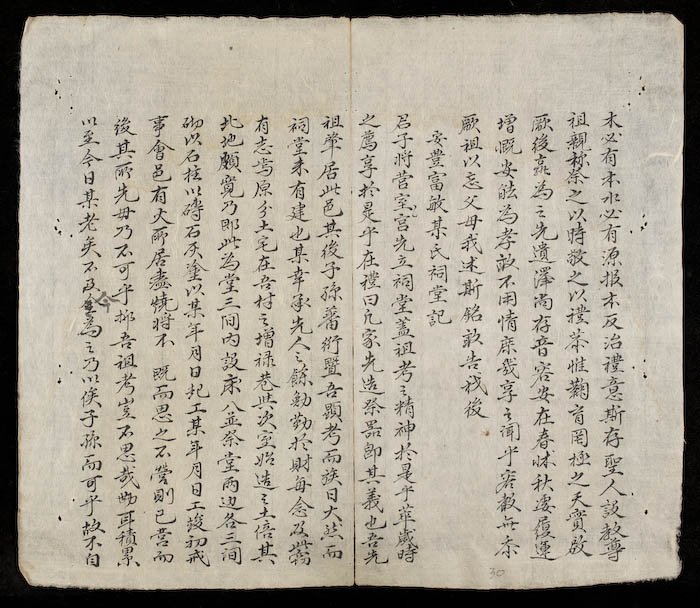 木必有本水必有源报本反治禮意斯存聖人設教尊
祖親祢祭之以時敬之以禮第惟鞠育罔極之天實啟
厥後為之先遺澤尚存音容安在春怵秋凄履運
增慨安能為孝敢不用情庶幾享之聞乎容歎無忝
厥祖以忘父母我述斯銘敢告我後
安豊富敏某氏祠堂記
君子將营室宮先立祠堂盖祖考之精神於是乎萃歲時
之薦享於是乎在禮曰凢家先造祭器即其義也吾先
祖肇居此邑其後子孫蕃衍曁吾顯考而族日大然而
祠堂未有建也某幸承先人之餘勉勤於財每念及此竊
有志焉原分土宅在吾村之增禄巷次室始造之土倍其
北地頗寬乃即此為堂三間内設床八並祭堂两边各三間
砌以石柱以磚石灰塗以某年月日起工某年月日工竣初戒
事會邑有火所居盡燒將不 既而思之不營則已营而
後其所先毋乃不可乎抑吾祖考豈不思哉耳積累
以至今日某老矣不及今為之乃以俟子孫而可乎故不自
30